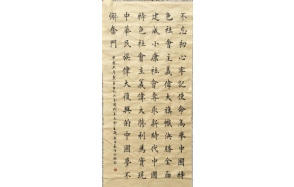 不忘初心牢記使命高舉中國特
色社會主義偉大旗幟決勝全面
建成小康社會奪取新時代中國
特色社會主義偉大勝利為實現
中華民族偉大復興的中國夢不
懈奮鬥